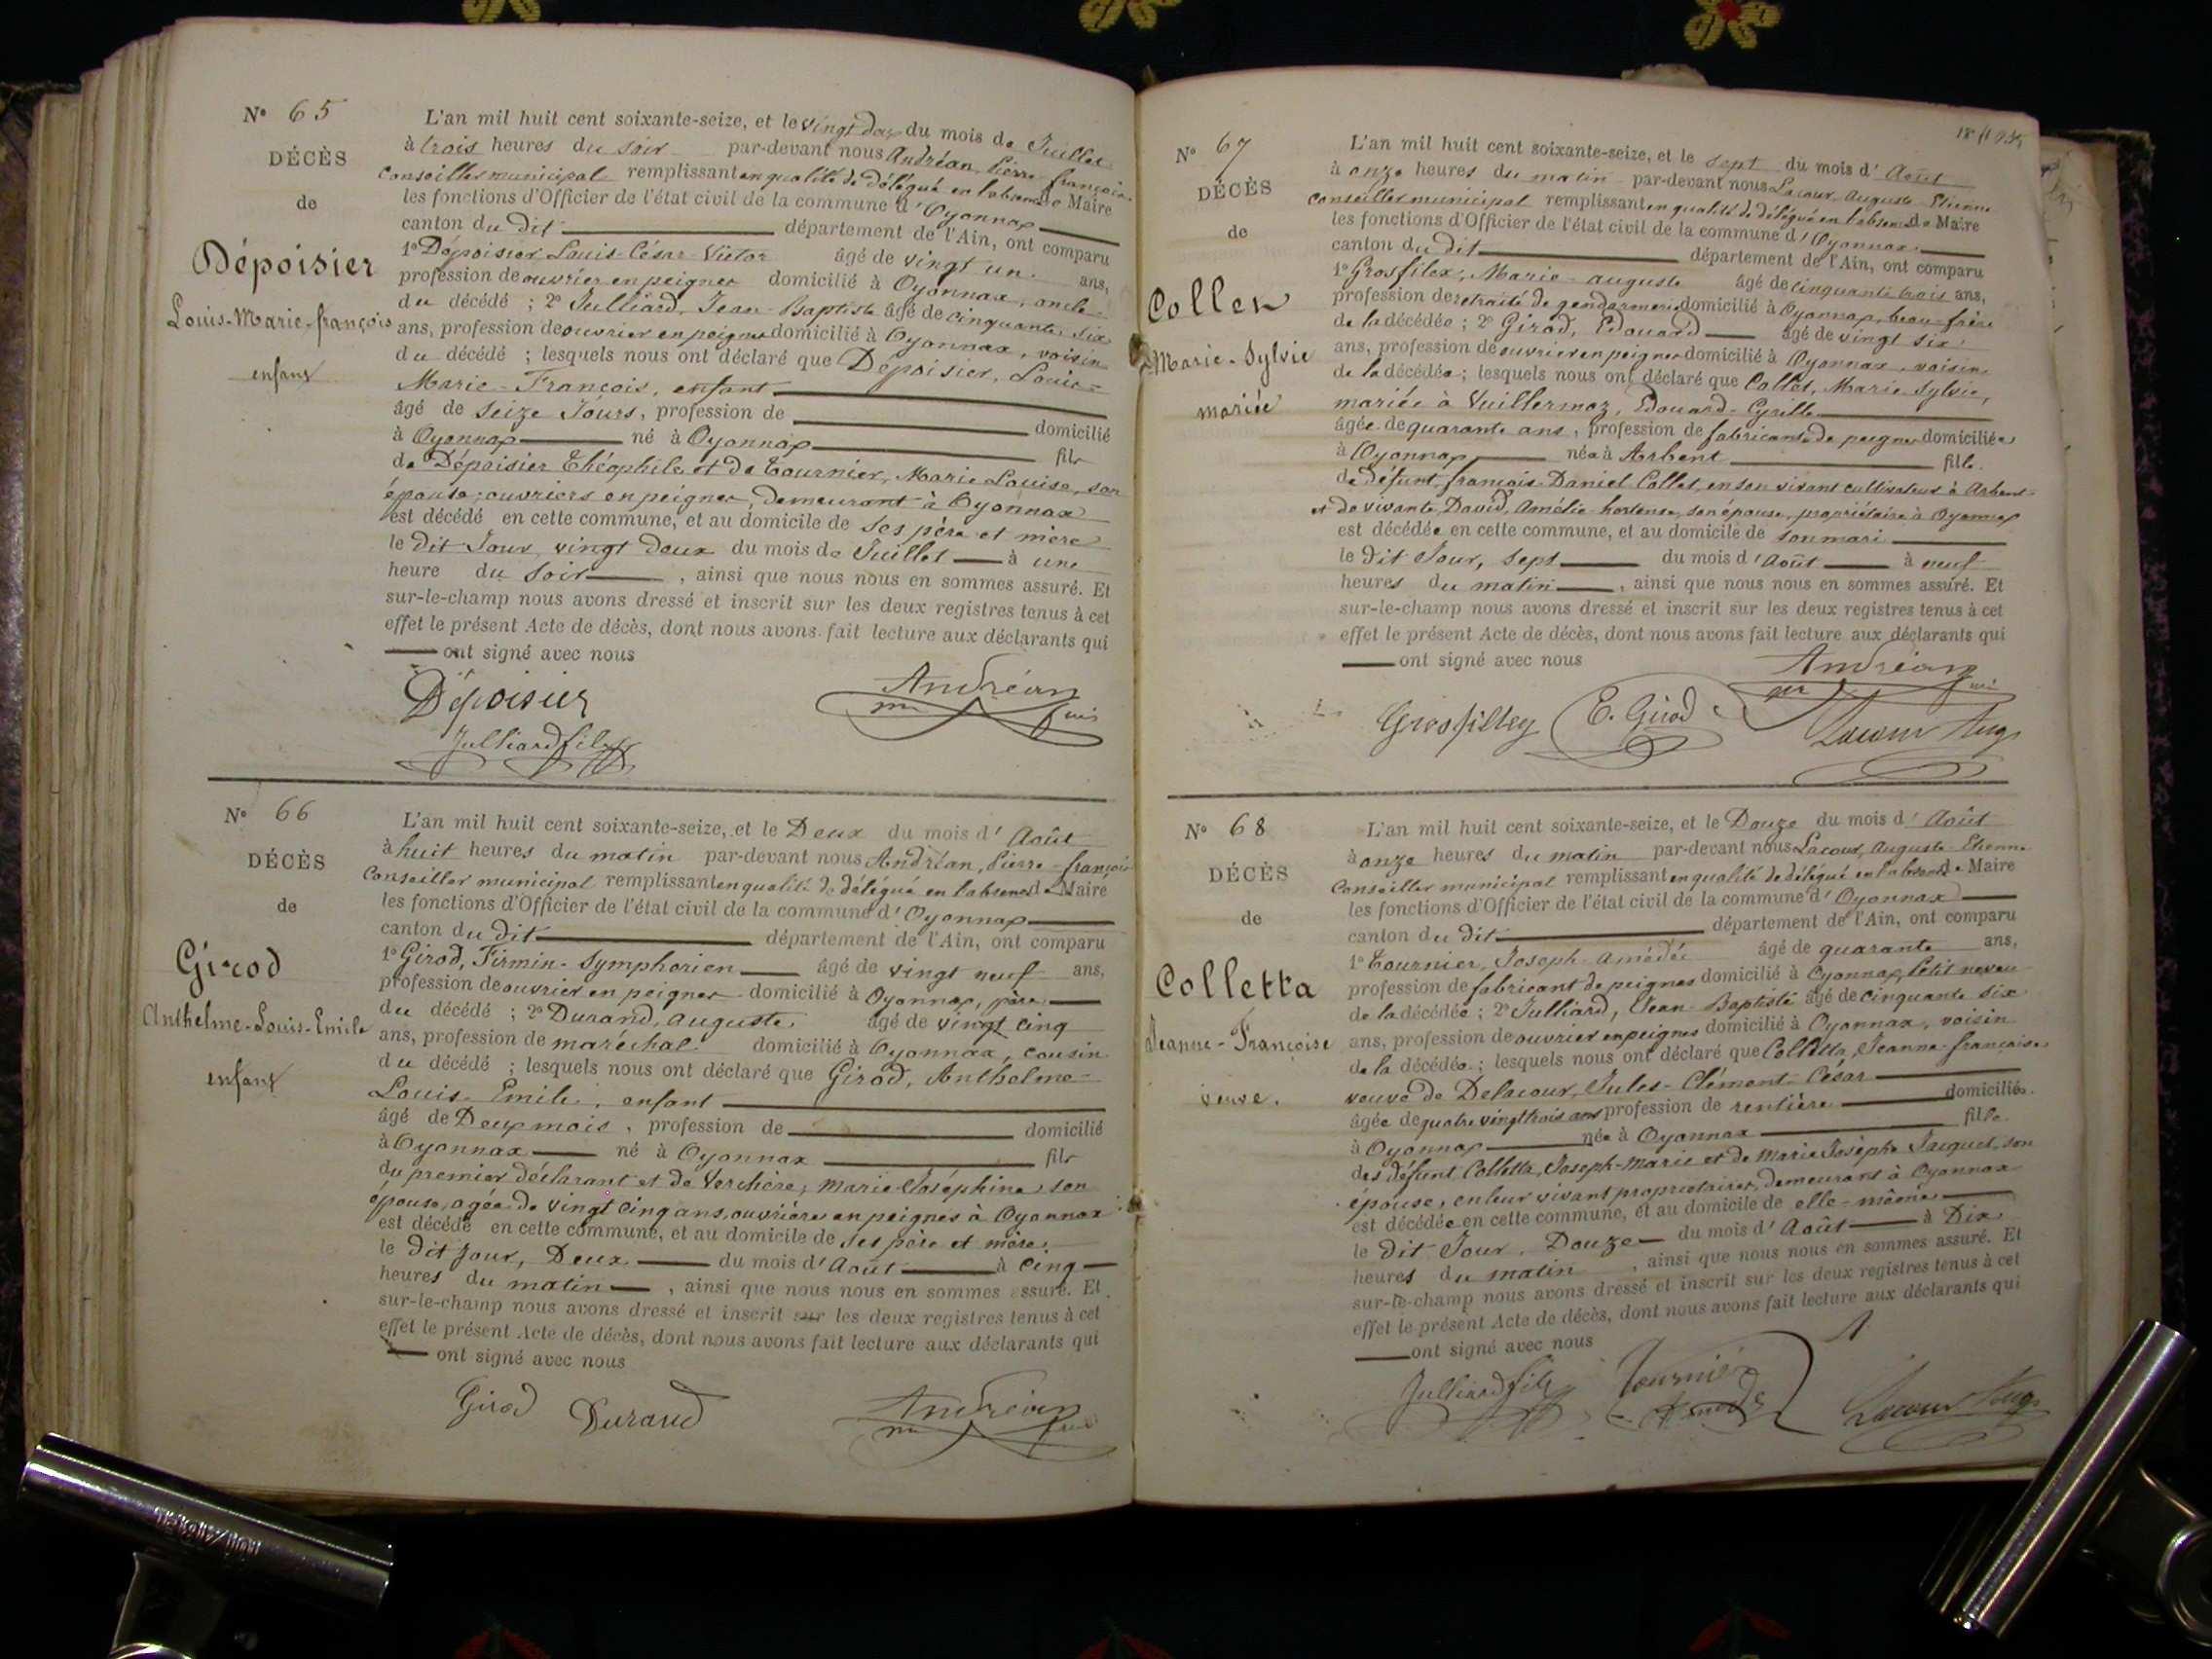 N° 65
DÉCÈS
de
Dépoisier
Louis-Marie-françois
enfant
L'an mil huit cent soixante-seize, et le vingt deux du mois de Juillet
à trois heures du soir par-devant nous Andréan, Pierre-françois
Conseiller municipal remplissant en qualité de délégué en l'absence de Maire
les fonctions d'Officier de l'état civil de la commune d'Oyonnax
canton du dit département de l'Ain, ont comparu
1° Dépoisier Louis-César-Victor âgé de vingt un ans,
profession de ouvrier en peignes domicilié à Oyonnax, oncle
du décédé ; 2° Julliard, Jean-Baptiste âgé de cinquante six
ans, profession de ouvrier en peignes domicilié à Oyonnax, voisin
du décédé ; lesquels nous ont déclaré que Dépoisier, Louis=
Marie-François, enfant
âgé de seize Jours, profession de domicilié
à Oyonnax né à Oyonnax fils
de Dépoisier Théophile et de Tournier, Marie Louise, son
épouse, ouvriers en peignes, demeurant à Oyonnax
est décédé en cette commune, et au domicile de ses père et mère
le dit Jour vingt deux du mois de Juillet à une
heure du soir , ainsi que nous nous en sommes assuré. Et
sur-le-champ nous avons dressé et inscrit sur les deux registres tenus à cet
effet le présent Acte de décès, dont nous avons fait lecture aux déclarants qui
ont signé avec nous
Dépoisier
Andréan
Julliard fils
N° 66
DÉCÈS
de
Girod
Anthelme-Louis-Emile
enfant
L'an mil huit cent soixante-seize, et le Deux du mois d'Août
à huit heures du matin par-devant nous Andréan, Pierre-françois
Conseiller municipal remplissant en qualité de délégué en l'absence de Maire
les fonctions d'Officier de l'état civil de la commune d'Oyonnax
canton du dit département de l'Ain, ont comparu
1° Girod, Firmin-Symphorien âgé de vingt neuf ans,
profession de ouvrier en peignes domicilié à Oyonnax, père
du décédé ; 2° Durand, Auguste âgé de vingt cinq
ans, profession de maréchal domicilié à Oyonnax, cousin
du décédé ; lesquels nous ont déclaré que Girod, Anthelme-
Louis-Emile, enfant
âgé de Deux mois, profession de domicilié
à Oyonnax né à Oyonnax fils
du premier déclarant et de Verchère, Marie-Joséphine, son
épouse, agée de vingt cinq ans, ouvrière en peignes à Oyonnax
est décédé en cette commune, et au domicile de ses père et mère,
le dit jour, Deux du mois d'Août à cinq
heures du matin , ainsi que nous nous en sommes assuré. Et
sur-le-champ nous avons dressé et inscrit sur les deux registres tenus à cet
effet le présent Acte de décès, dont nous avons fait lecture aux déclarants qui
ont signé avec nous
Girod Durand Andréan
N° 67
DÉCÈS
de
Collet
Marie-Sylvie
mariée
L'an mil huit cent soixante-seize, et le sept du mois d'Août
à onze heures du matin par-devant nous Lacour, Auguste-Etienne
Conseiller municipal remplissant en qualité de délégué en l'absence de Maire
les fonctions d'Officier de l'état civil de la commune d'Oyonnax
canton du dit département de l'Ain, ont comparu
1° Grosfilex, Marie-auguste âgé de cinquante trois ans,
profession de retraité de gendarmerie domicilié à Oyonnax, beau-frère
de la décédée ; 2° Girod, Edouard âgé de vingt six
ans, profession de ouvrier en peignes domicilié à Oyonnax, voisin
de la décédée ; lesquels nous ont déclaré que Collet, Marie Sylvie,
mariée à Vuillermoz, Edouard-Cyrille
âgée de quarante ans, profession de fabricant de peignes domiciliée
à Oyonnax née à Arbent fille
de Défunt françois Daniel Collet, en son vivant cultivateur à Arbent
et de vivante David, Amélie-hortense, son épouse, propriétaire à Oyonnax
est décédée en cette commune, et au domicile de son mari
le dit Jour, sept du mois d'Août à neuf
heures du matin , ainsi que nous nous en sommes assuré. Et
sur-le-champ nous avons dressé et inscrit sur les deux registres tenus à cet
effet le présent Acte de décès, dont nous avons fait lecture aux déclarants qui
ont signé avec nous
Andréan
Grosfilley E. Girod Lacour Aug
N° 68
DÉCÈS
de
Colletta
Jeanne-Françoise
veuve.
L'an mil huit cent soixante-seize, et le Douze du mois d'Août
à onze heures du matin par-devant nous Lacour, Auguste-Etienne
Conseiller municipal remplissant en qualité de délégué en l'absence de Maire
les fonctions d'Officier de l'état civil de la commune d'Oyonnax
canton du dit département de l'Ain, ont comparu
1° Tournier, Joseph-Amédée âgé de quarante ans,
profession de fabricant de peignes domicilié à Oyonnax, Petit neveu
de la décédée ; 2° Julliard, Jean-Baptiste âgé de cinquante six
ans, profession de ouvrier en peignes domicilié à Oyonnax, voisin
de la décédée ; lesquels nous ont déclaré que Colletta, Jeanne-françoise
veuve de Delacour, Jules-Clément-César
âgée de quatre vingt trois ans profession de rentière domiciliée
à Oyonnax née à Oyonnax fille
des défunt Colletta, Joseph-Marie et de Marie Josèphe Jacquet, son
épouse, en leur vivant propriétaires, demeurant à Oyonnax
est décédée en cette commune, et au domicile de elle-même
le dit Jour, Douze du mois d'Août à Dix
heures du matin , ainsi que nous nous en sommes assuré. Et
sur-le-champ nous avons dressé et inscrit sur les deux registres tenus à cet
effet le présent Acte de décès, dont nous avons fait lecture aux déclarants qui
ont signé avec nous
Julliard fils Tournier Amédée Lacour Aug